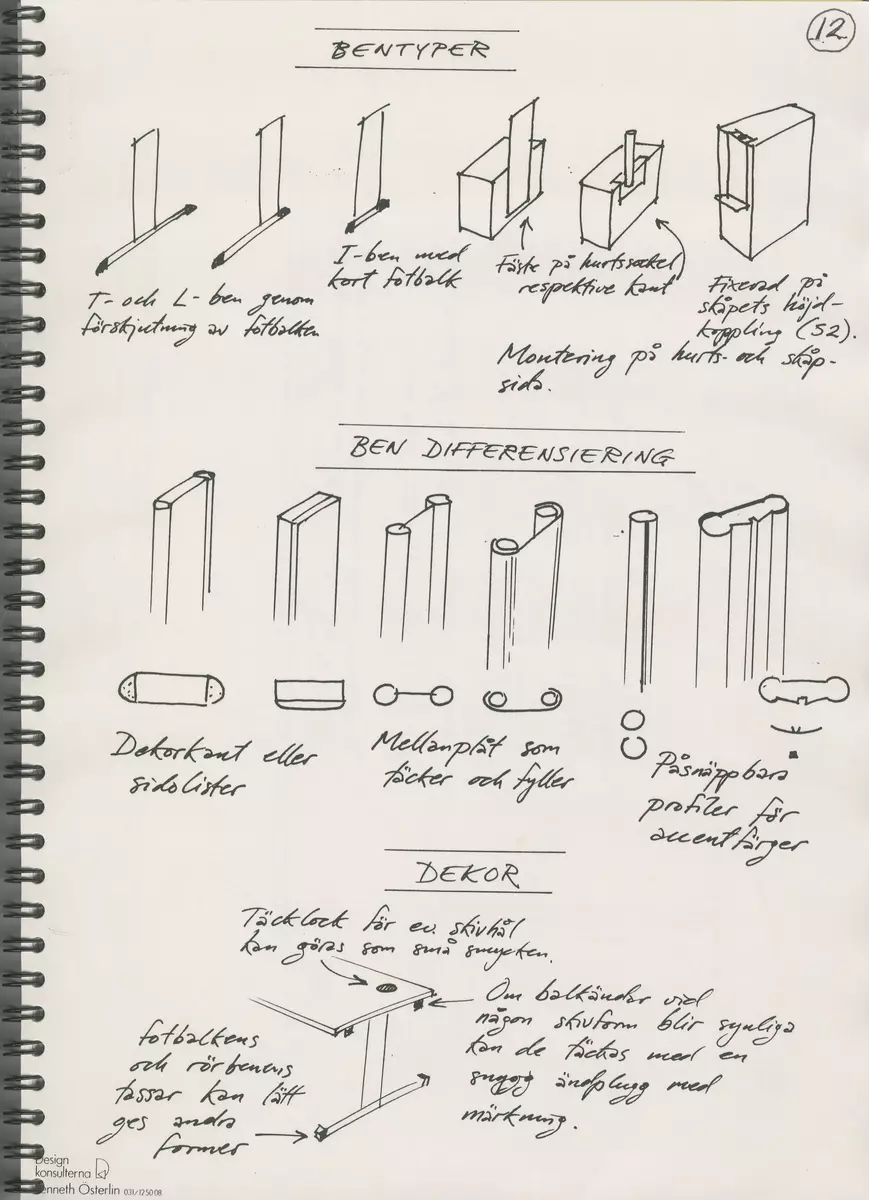 12
BENTYPER
T- och L- ben genom
förskjutning av fotbalken
I-ben med
kort fotbalk
Fäste på hurtssockel
respektive kant
Fixerad på
skåpets höjd-
koppling (S2).
Montering på hurts- och skåp-
sida.
BEN DIFFERENSIERING
Dekorkant eller
sidolister
Mellanplåt som
täcker och fyller
Påsnäppbara
profiler för
accentfärger
DEKOR
Täcklock för ev. skivhål
kan göras som små smycken.
Om balkändar vid
någon skivform blir synliga
kan de täckas med en
snygg ändplugg med
märkning.
fotbalkens
och rörbenens
tassar kan lätt
ges andra
former
Design
konsulterna
Kenneth Österlin 031/125008